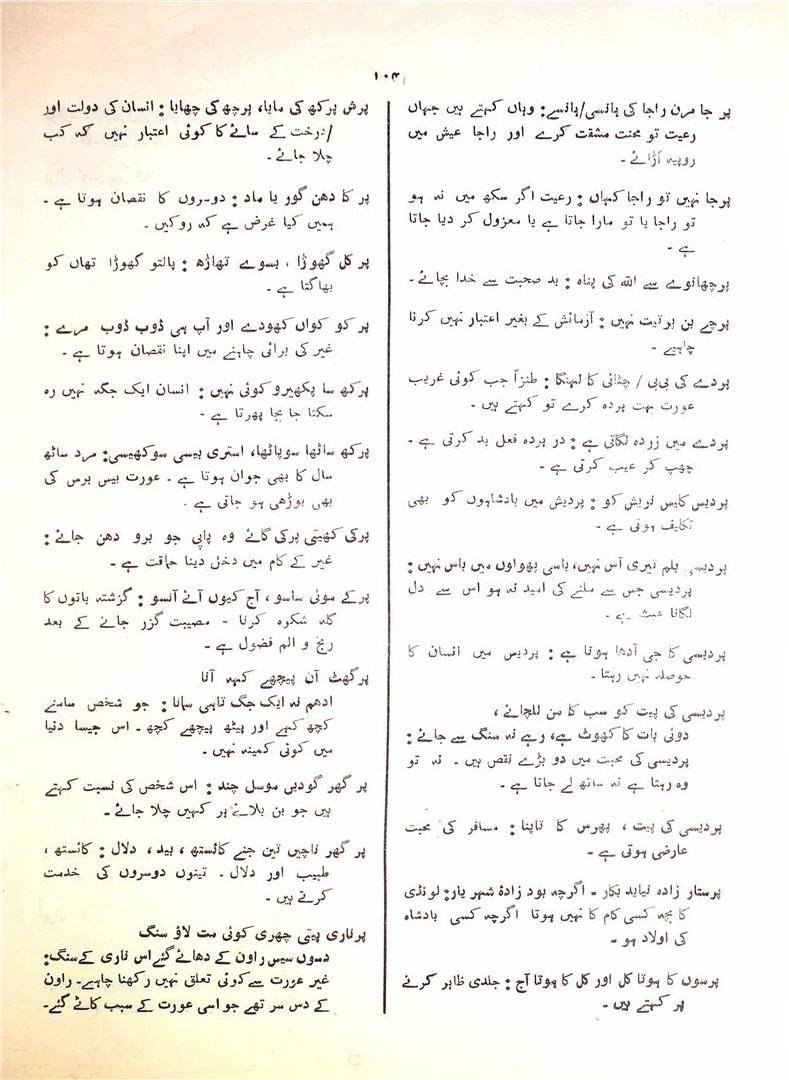 ۱۰۴
پر جا مرن راجا کی ہانسی/ہانسے: وہاں کہتے ہیں جہاں
رعیت تو محنت مشقت کرے اور راجا عیش میں
روپیہ اڑائے ۔
پرجا نہیں تو راجا کہاں : رعیت اگر سکھ میں نہ ہو
تو راجا یا تو مارا جاتا ہے یا معزول کر دیا جاتا
ہے ۔
پرچھانوے سے اللہ کی پناہ : بد صحبت سے خدا بچائے ۔
پرچے بن پرتیت نہیں : آزمائش کے بغیر اعتبار نہیں کرنا
چاہیے ۔
پردے کی بی بی / چٹائی کا لہنگا : طنزاً جب کوئی غریب
عورت بہت پردہ کرے تو کہتے ہیں ۔
پردے میں زردہ لگاتی ہے : در پردہ فعل بد کرتی ہے ۔
چھپ کر عیب کرتی ہے ۔
پردیس کلیس نریش کو : پردیش میں بادشاہوں کو بھی
تکلیف ہوتی ہے ۔
پردیسی بلم تیری آس نہیں، باسی پھولوں میں باس نہیں :
پردیسی جس سے ملنے کی امید نہ ہو اس سے دل
لگانا عبث ہے ۔
پردیسی کا جی آدھا ہوتا ہے : پردیس میں انسان کا
حوصلہ نہیں رہتا ۔
پردیسی کی پیت کو سب کا من للچائے ،
دوئی بات کا کھوٹ ہے، رہے نہ سنگ سے جائے :
پردیسی کی محبت میں دو بڑے نقص ہیں ۔ نہ تو
وہ رہتا ہے نہ ساتھ لے جاتا ہے ۔
پردیسی کی پیت ، پھوس کا تاپنا : مسافر کی محبت
عارضی ہوتی ہے ۔
پرستار زادہ نیاید بکار ۔ اگرچہ بود زادۂ شہر یار: لونڈی
کا بچہ کسی کام کا نہیں ہوتا اگرچہ کسی بادشاہ
کی اولاد ہو ۔
پرسوں کا ہوتا کل اور کل کا ہوتا آج : جلدی ظاہر کرنے
پر کہتے ہیں ۔
پرش پرکھ کی مایا، پرچھ کی چھایا : انسان کی دولت اور
/درخت کے سائے کا کوئی اعتبار نہیں کہ کب
چلا جائے ۔
پر کا دھن گور یا ماد : دوسروں کا نقصان ہوتا ہے ۔
ہمیں کیا غرض ہے کہ روکیں ۔
پر کل گھوڑا ، بسوے تھاڑھ : پالتو گھوڑا تھاں کو
بھاگتا ہے ۔
پر کو کواں کھودے اور آپ ہی ڈوب ڈوب مرے :
غیر کی برائی چاہنے میں اپنا نقصان ہوتا ہے ۔
پرکھ سا پکھیرو کوئی نہیں : انسان ایک جگہ نہیں رہ
سکتا جا بجا پھرتا ہے ۔
پرکھ ساٹھا سو پاٹھا، استری بیسی سو کھیسی: مرد ساٹھ
سال کا بھی جوان ہوتا ہے ۔ عورت بیس برس کی
بھی بوڑھی ہو جاتی ہے ۔
پرکی کھیتی پرکی گائے وہ پاپی جو برو دھن جائے :
غیر کے کام میں دخل دینا حماقت ہے ۔
پرکے موئی ساسو ، آج کیوں آئے آنسو : گزشتہ باتوں کا
گلہ شکوہ کرنا ۔ مصیبت گزر جانے کے بعد
رنج و الم فضول ہے ۔
پرگھٹ آن پیچھے کہہ آنا
ادھم نہ ایک جگ تاہی سمانا : جو شخص سامنے
کچھ کہے اور پیٹھ پیچھے کچھ ۔ اس جیسا دنیا
میں کوئی کمینہ نہیں ۔
پر گھر گودیں موسل چند : اس شخص کی نسبت کہتے
ہیں جو بن بلائے ہر کہیں چلا جائے ۔
پر گھر ناچیں تین جنے کائستھ ، بید ، دلال : کائستھ ،
طبیب اور دلال ۔ تینوں دوسروں کی خدمت
کرتے ہیں ۔
پرناری پیتی چھری کوئی مت لاؤ سنگ
دسوں سیس راون کے دھائے گئے اس ناری کے سنگ:
غیر عورت سے کوئی تعلق نہیں رکھنا چاہیے۔ راون
کے دس سر تھے جو اسی عورت کے سبب کاٹے گئے۔